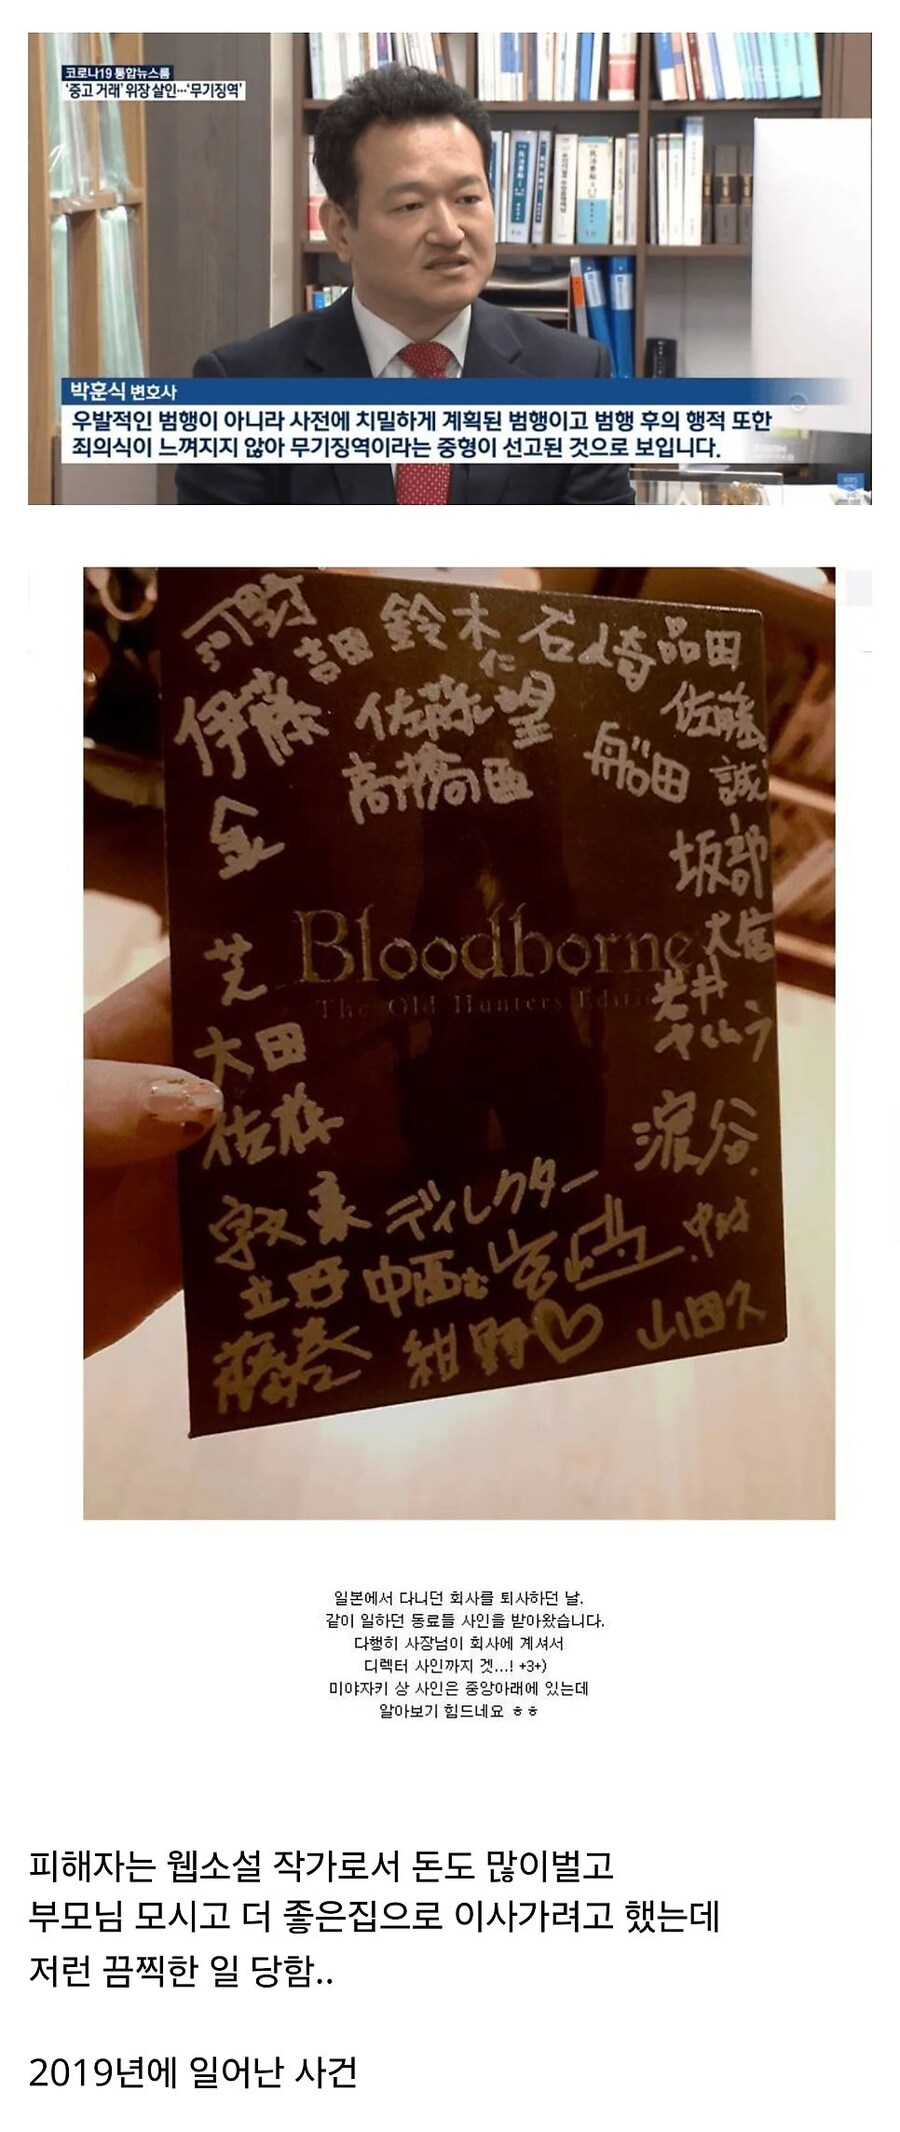 코로나19 통합뉴스룸
'중고 거래' 위장 살인…'무기징역'
박훈식 변호사
우발적인 범행이 아니라 사전에 치밀하게 계획된 범행이고 범행 후의 행적 또한
죄의식이 느껴지지 않아 무기징역이라는 중형이 선고된 것으로 보입니다.
河野
吉田
鈴木
仁
石崎
品田
伊藤
佐藤 望
佐藤
誠
高橋
船田
金
坂部
大信
Bloodborne
The Old Hunters Edition
芝
岩井
大田
佐藤
深谷
敦
ディレクター
宮崎
中村
立野
中西
藤巻
紺野♡
山田久
일본에서 다니던 회사를 퇴사하던 날.
같이 일하던 동료들 사인을 받아왔습니다.
다행히 사장님이 회사에 계셔서
디렉터 사인까지 겟...! +3+)
미야자키 상 사인은 중앙아래에 있는데
알아보기 힘드네요 ㅎㅎ
피해자는 웹소설 작가로서 돈도 많이벌고
부모님 모시고 더 좋은집으로 이사가려고 했는데
저런 끔찍한 일 당함..
2019년에 일어난 사건